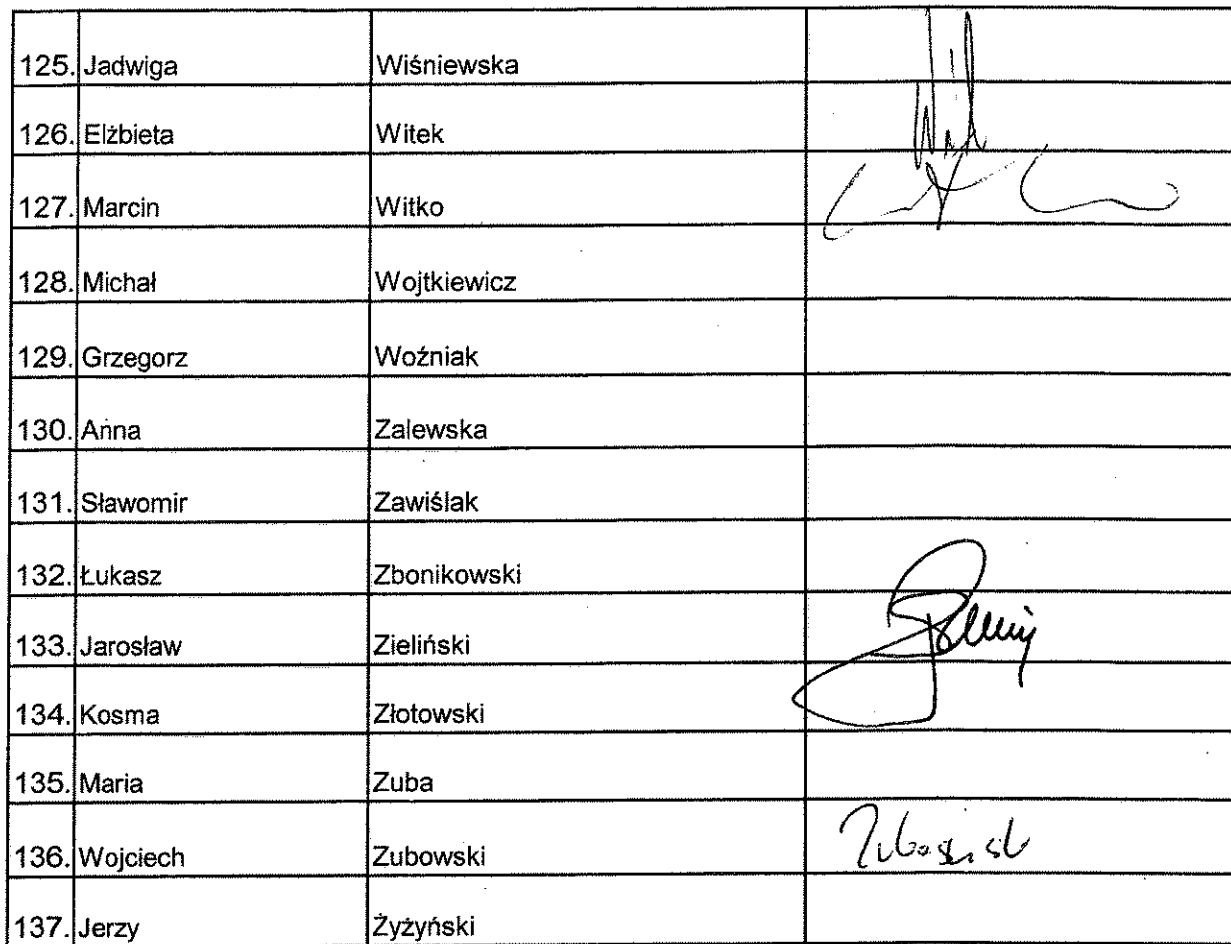 125. Jadwiga Wiśniewska
126. Elżbieta Witek
127. Marcin Witko
128. Michał Wojtkiewicz
129. Grzegorz Woźniak
130. Anna Zalewska
131. Sławomir Zawiślak
132. Łukasz Zbonikowski
133. Jarosław Zieliński
134. Kosma Złotowski
135. Maria Zuba
136. Wojciech Zubowski
137. Jerzy Żyżyński